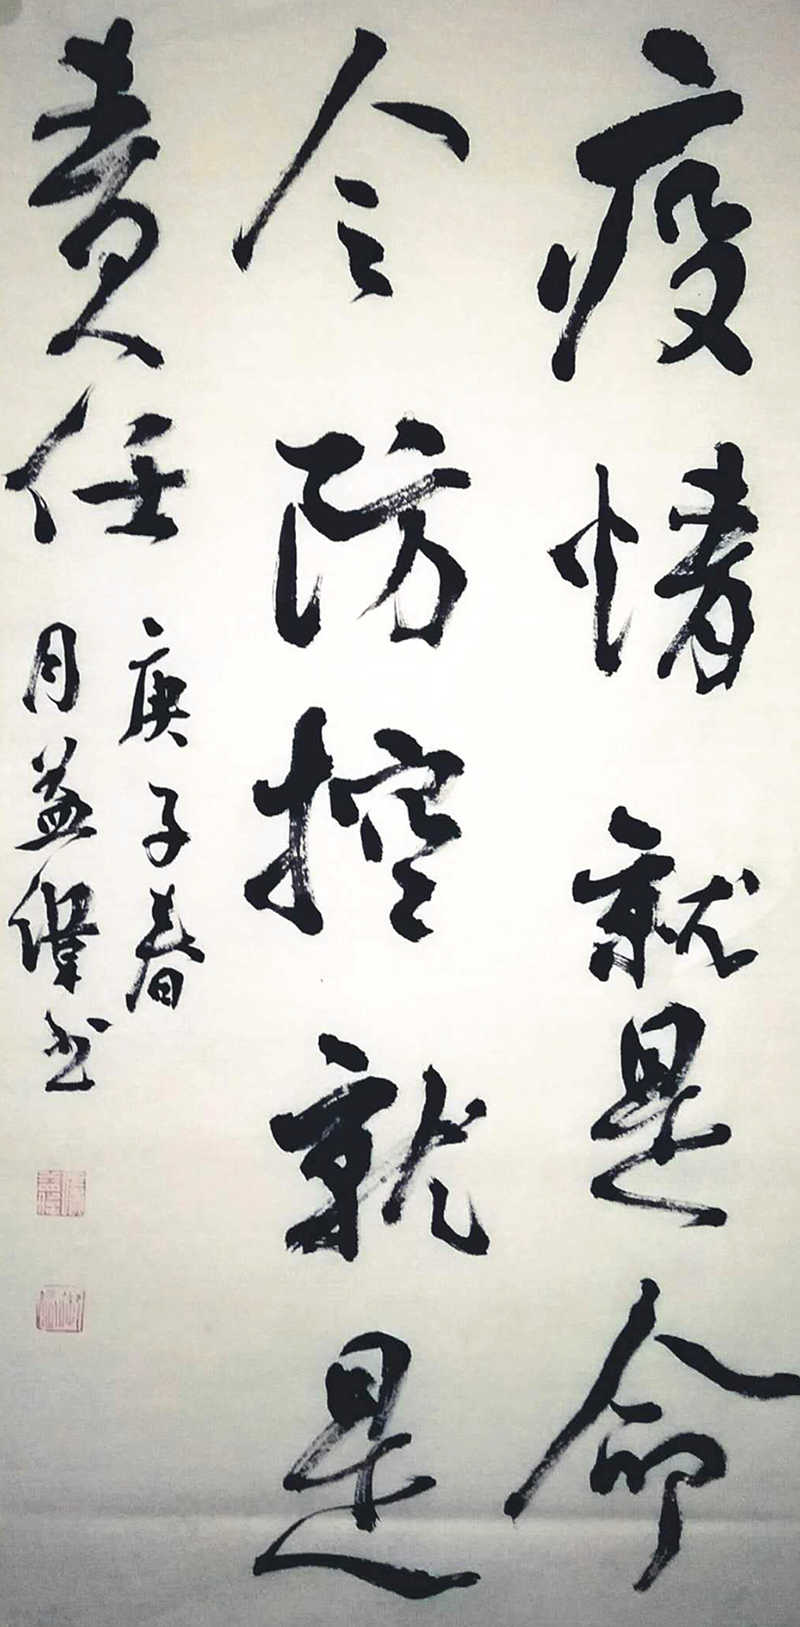 疫情就是命
令防控就是
责任
庚子春
月益伟书